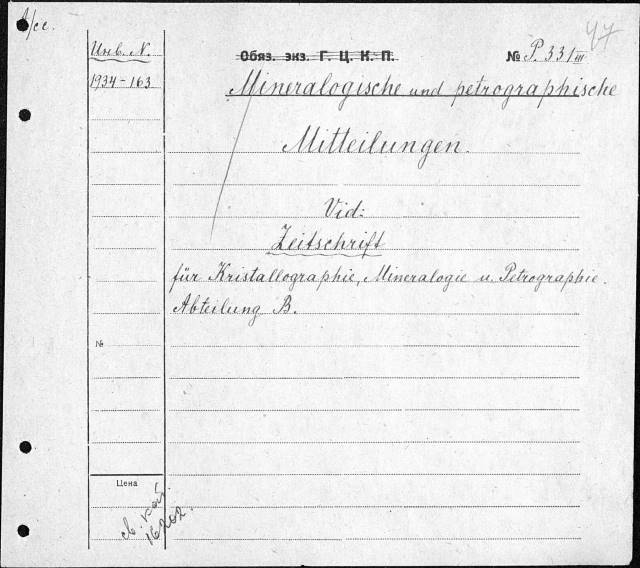 47
Инв. N.
1934-163
Обяз. экз. Г. Ц. К. П.
№ P. 331 III
Mineralogische und petrographische
Mitteilungen.
Vid:
Zeitschrift
für Kristallographie, Mineralogie u. Petrographie.
Abteilung B.
№
Цена
св. кат.
16202.